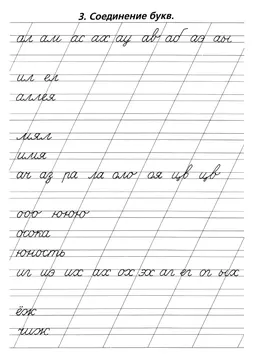 3. Соединение букв.
ал ам ас ах ау ав аб аэ аы
ил ел
аллея
мял
имя
ач аз ра ла оло оя цв цв
ооо ююю
осока
юность
иг из их ах ох эх аг ег ог ых
ёж
чиж